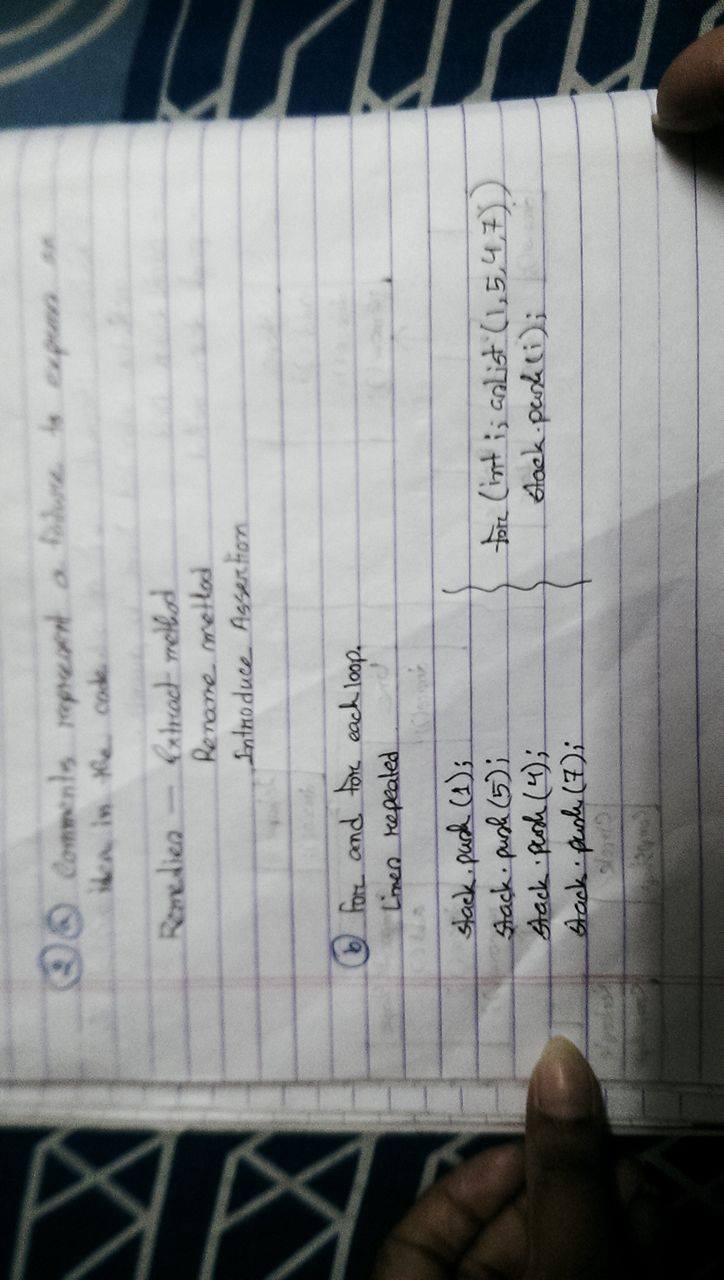 2 a Comments represent a failure to express an
idea in the code
Remedies — Extract method
Rename method
Introduce Assertion
b For and for each loop.
Lines repeated
stack.push (1);
stack.push (5);
stack.push (4);
stack.push (7);
for (int i; asList (1, 5, 4, 7))
stack.push (i);